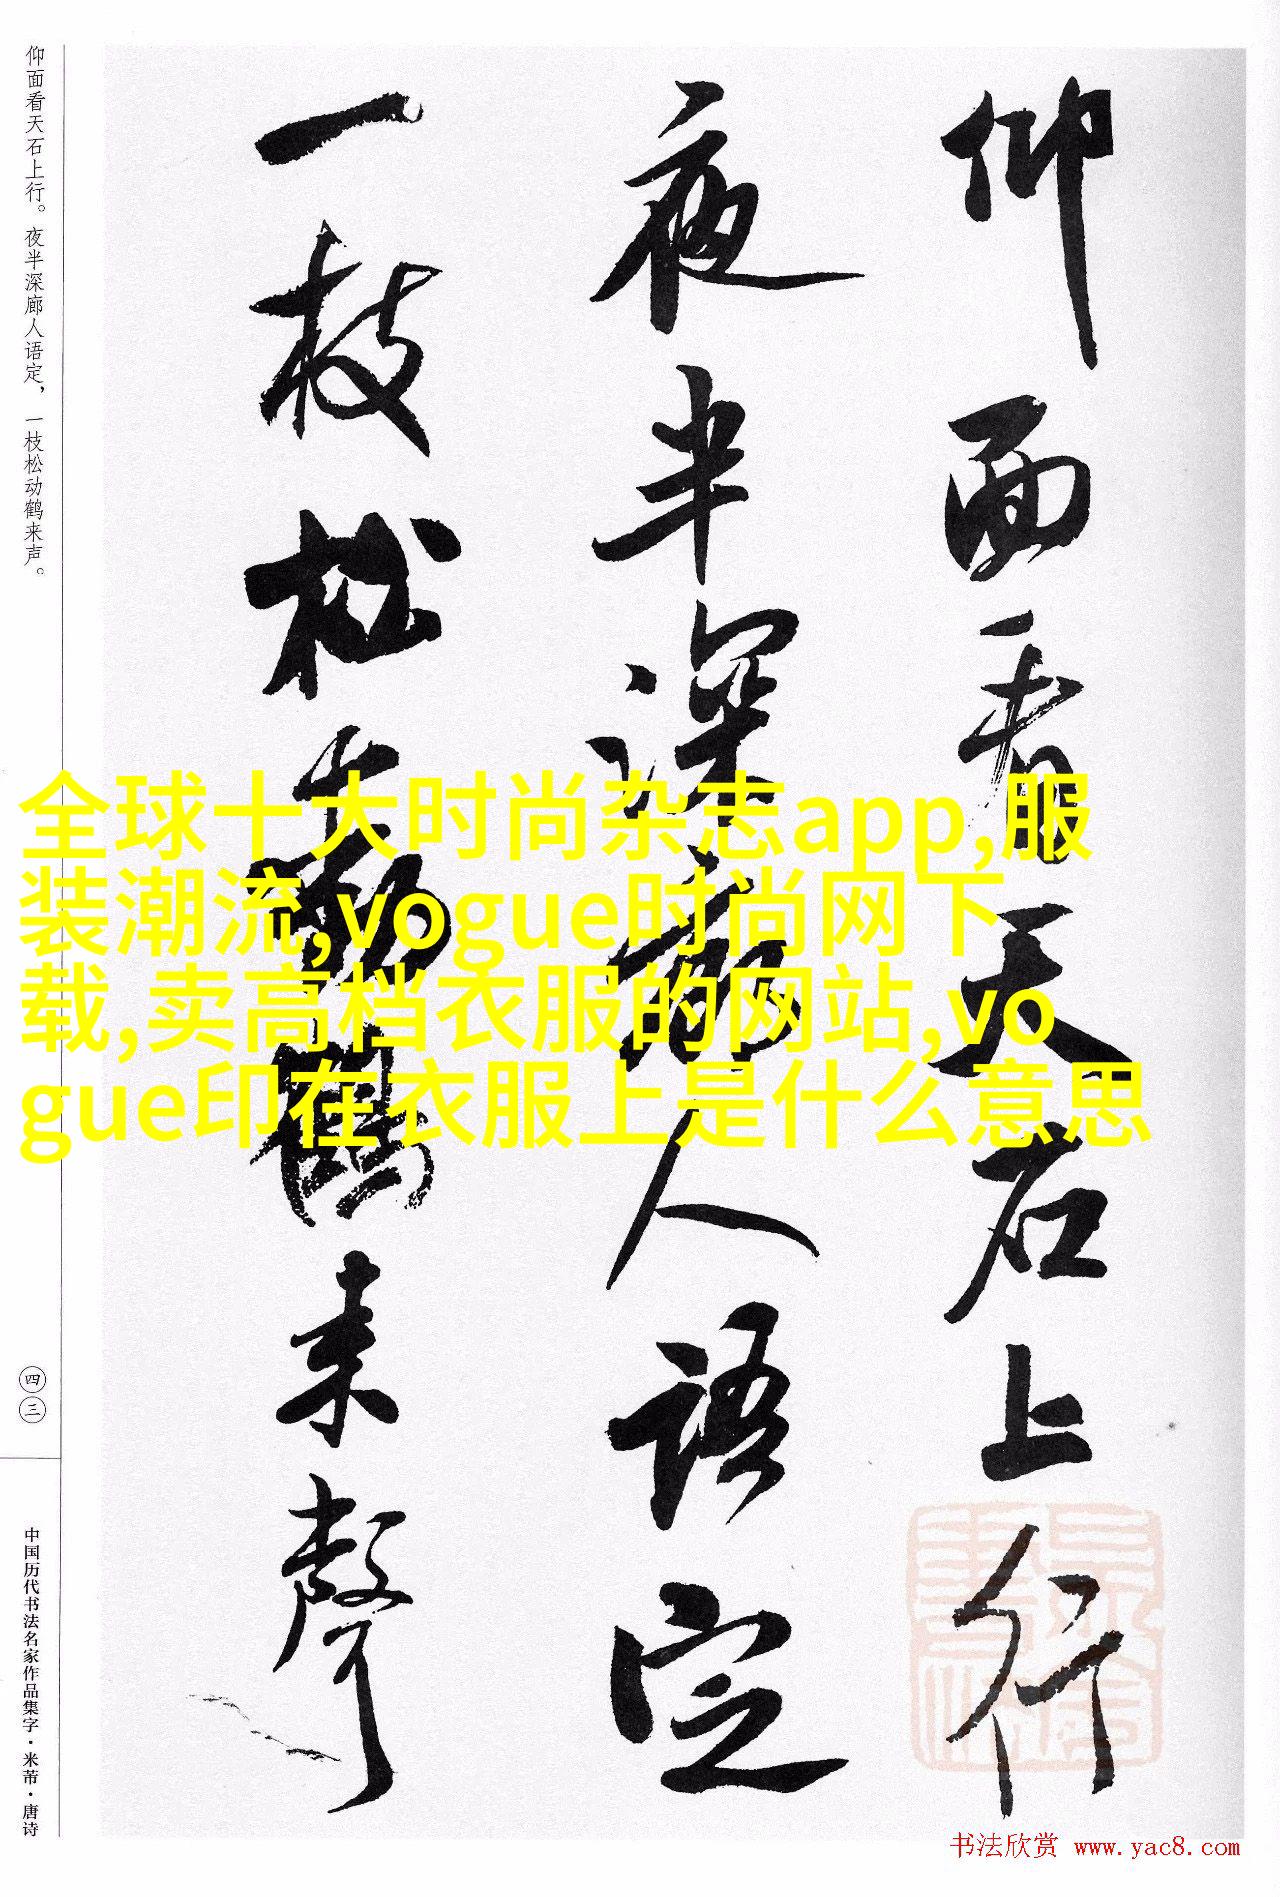 仰面看天石上行
夜半深廊人语定
一枝松动鹤来声
仰面看天石上行。夜半深廊人语定，一枝松动鹤来声。
四三
中国历代书法名家作品集字·米芾·唐诗
全球十大时尚杂志app,服
装潮流,vogue时尚网下
载,卖高档衣服的网站,vo
gue印在衣服上是什么意思
书法欣赏 www.yac8.com